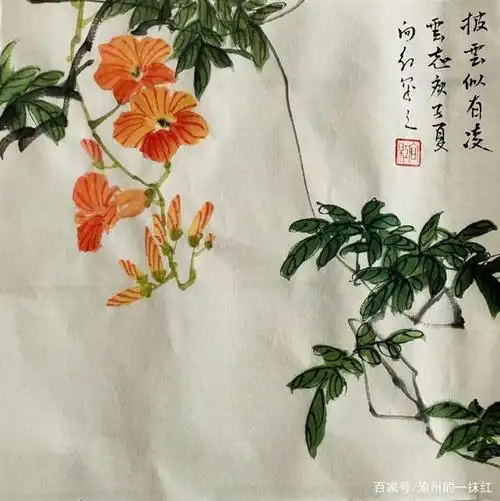 披雲似有凌
雲志亥子夏
向红写之
百家号/渝州的一抹红